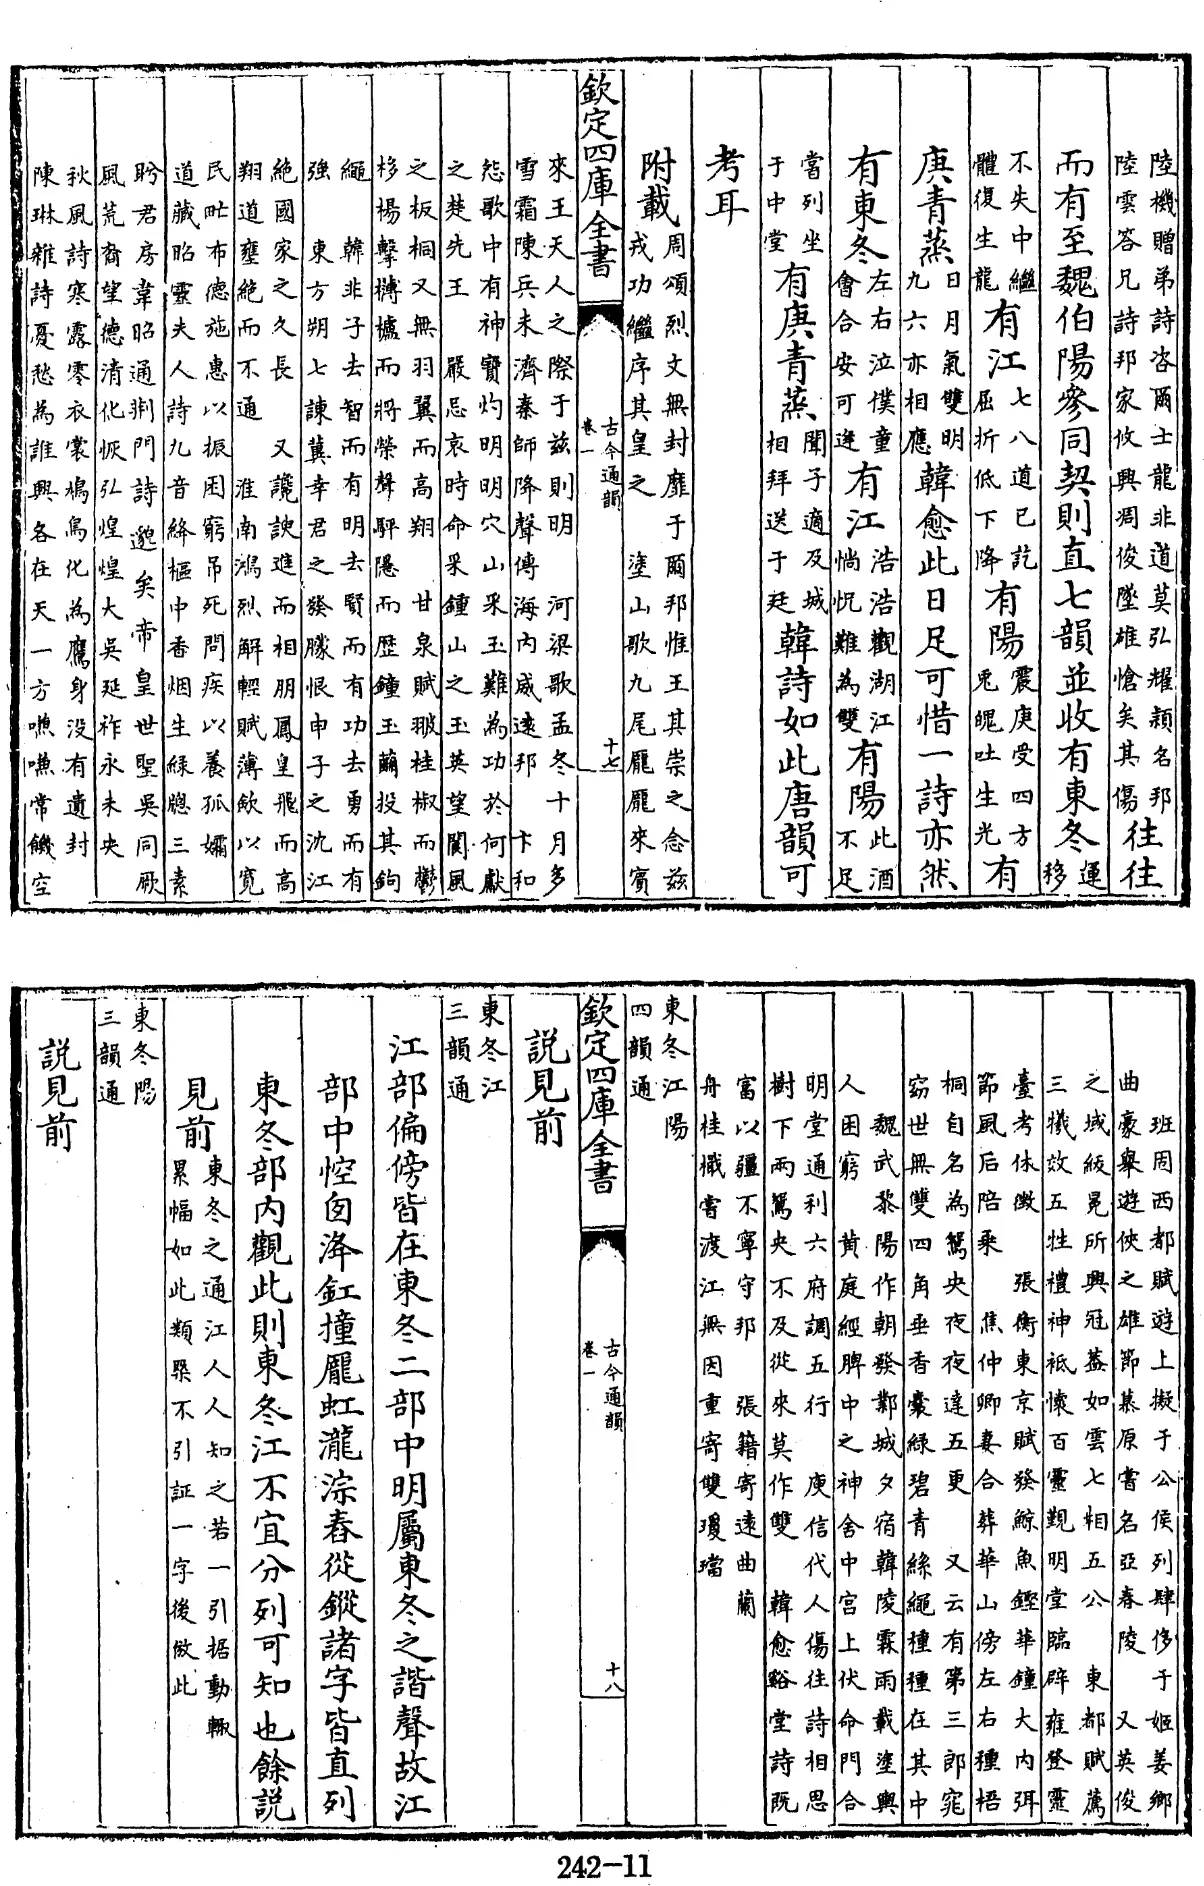 陸機贈弟詩咨爾士龍非道莫弘耀穎名邦
陸雲答兄詩邦家攸興凋俊墜雄愴矣其傷往往
而有至魏伯陽參同契則直七韻並收有東冬運移
不失中繼體復生龍有江七八道已訖屈折低下降有陽震庚受四方兎魄吐生光有
庚青蒸日月氣雙明九六亦相應韓愈此日足可惜一詩亦然
有東冬左右泣僕童會合安可逢有江浩浩觀湖江惝怳難為雙有陽此酒不足
當列坐于中堂有庚青蒸聞子適及城相拜送于廷韓詩如此唐韻可
考耳
附載周頌烈文無封靡于爾邦惟王其崇之念茲
戎功繼序其皇之 塗山歌九尾龐龐來賓
欽定四庫全書
古今通韻
卷一
十七
來王天人之際于兹則明 河梁歌孟冬十月多
雪霜陳兵未濟秦師降聲傳海內威遠邦 卞和
怨歌中有神寶灼明明穴山采玉難為功於何獻
之楚先王 嚴忌哀時命采鍾山之玉英望閬風
之板桐又無羽翼而高翔 甘泉賦翍桂椒而鬱
栘楊擊欂櫨而將榮聲駍隱而歷鐘玉繭投其鉤
繩 韓非子去智而有明去賢而有功去勇而有
強 東方朔七諫冀幸君之發矇恨申子之沈江
絶國家之久長 又讒諛進而相朋鳳皇飛而高
翔道壅絶而不通 淮南鴻烈解輕賦薄斂以寛
民氓布德施惠以振困窮弔死問疾以養孤孀
道藏昭靈夫人詩九音絳樞中香烟生綠牎三素
盻君房 韋昭通荆門詩邈矣帝皇世聖吳同厥
風荒裔望德清化恢弘煌煌大吳延祚永未央
秋風詩寒露零衣裳鳩鳥化為鷹身没有遺封
陳琳雜詩憂愁為誰興各在天一方嗷嗷常饑空
班固西都賦遊士擬于公侯列肆侈于姬姜鄉
曲豪舉遊俠之雄節慕原嘗名亞春陵 又英俊
之域紱冕所興冠蓋如雲七相五公 東都賦薦
三犧效五牲禮神祇懷百靈覲明堂臨辟雍登靈
臺考休徵 張衡東京賦發鯨魚鏗華鐘大丙弭
節風后陪乘 焦仲卿妻合葬華山傍左右種梧
桐自名為鴛鴦夜夜達五更 又云有第三郎窕
窈世無雙四角垂香囊綠碧青絲繩種種在其中
魏武黎陽作朝發鄴城夕宿韓陵霖雨載塗輿
人困窮 黃庭經脾中之神舍中宫上伏命門合
明堂通利六府調五行 庾信代人傷往詩相思
樹下兩鴛鴦不及從來莫作雙 韓愈谿堂詩既
富以彊不寧守邦 張籍寄遠曲蘭
舟桂檝嘗渡江無因重寄雙瓊璫
東冬江陽
四韻通
欽定四庫全書
古今通韻
卷一
十八
説見前
東冬江
三韻通
江部偏傍皆在東冬二部中明屬東冬之諧聲故江
部中悾囱洚釭撞龎虹瀧淙舂從鏦諸字皆直列
東冬部內觀此則東冬江不宜分列可知也餘説
見前東冬之通江人人知之若一引据動輒
累幅如此類槩不引証一字後倣此
東冬陽
三韻通
説見前
242-11